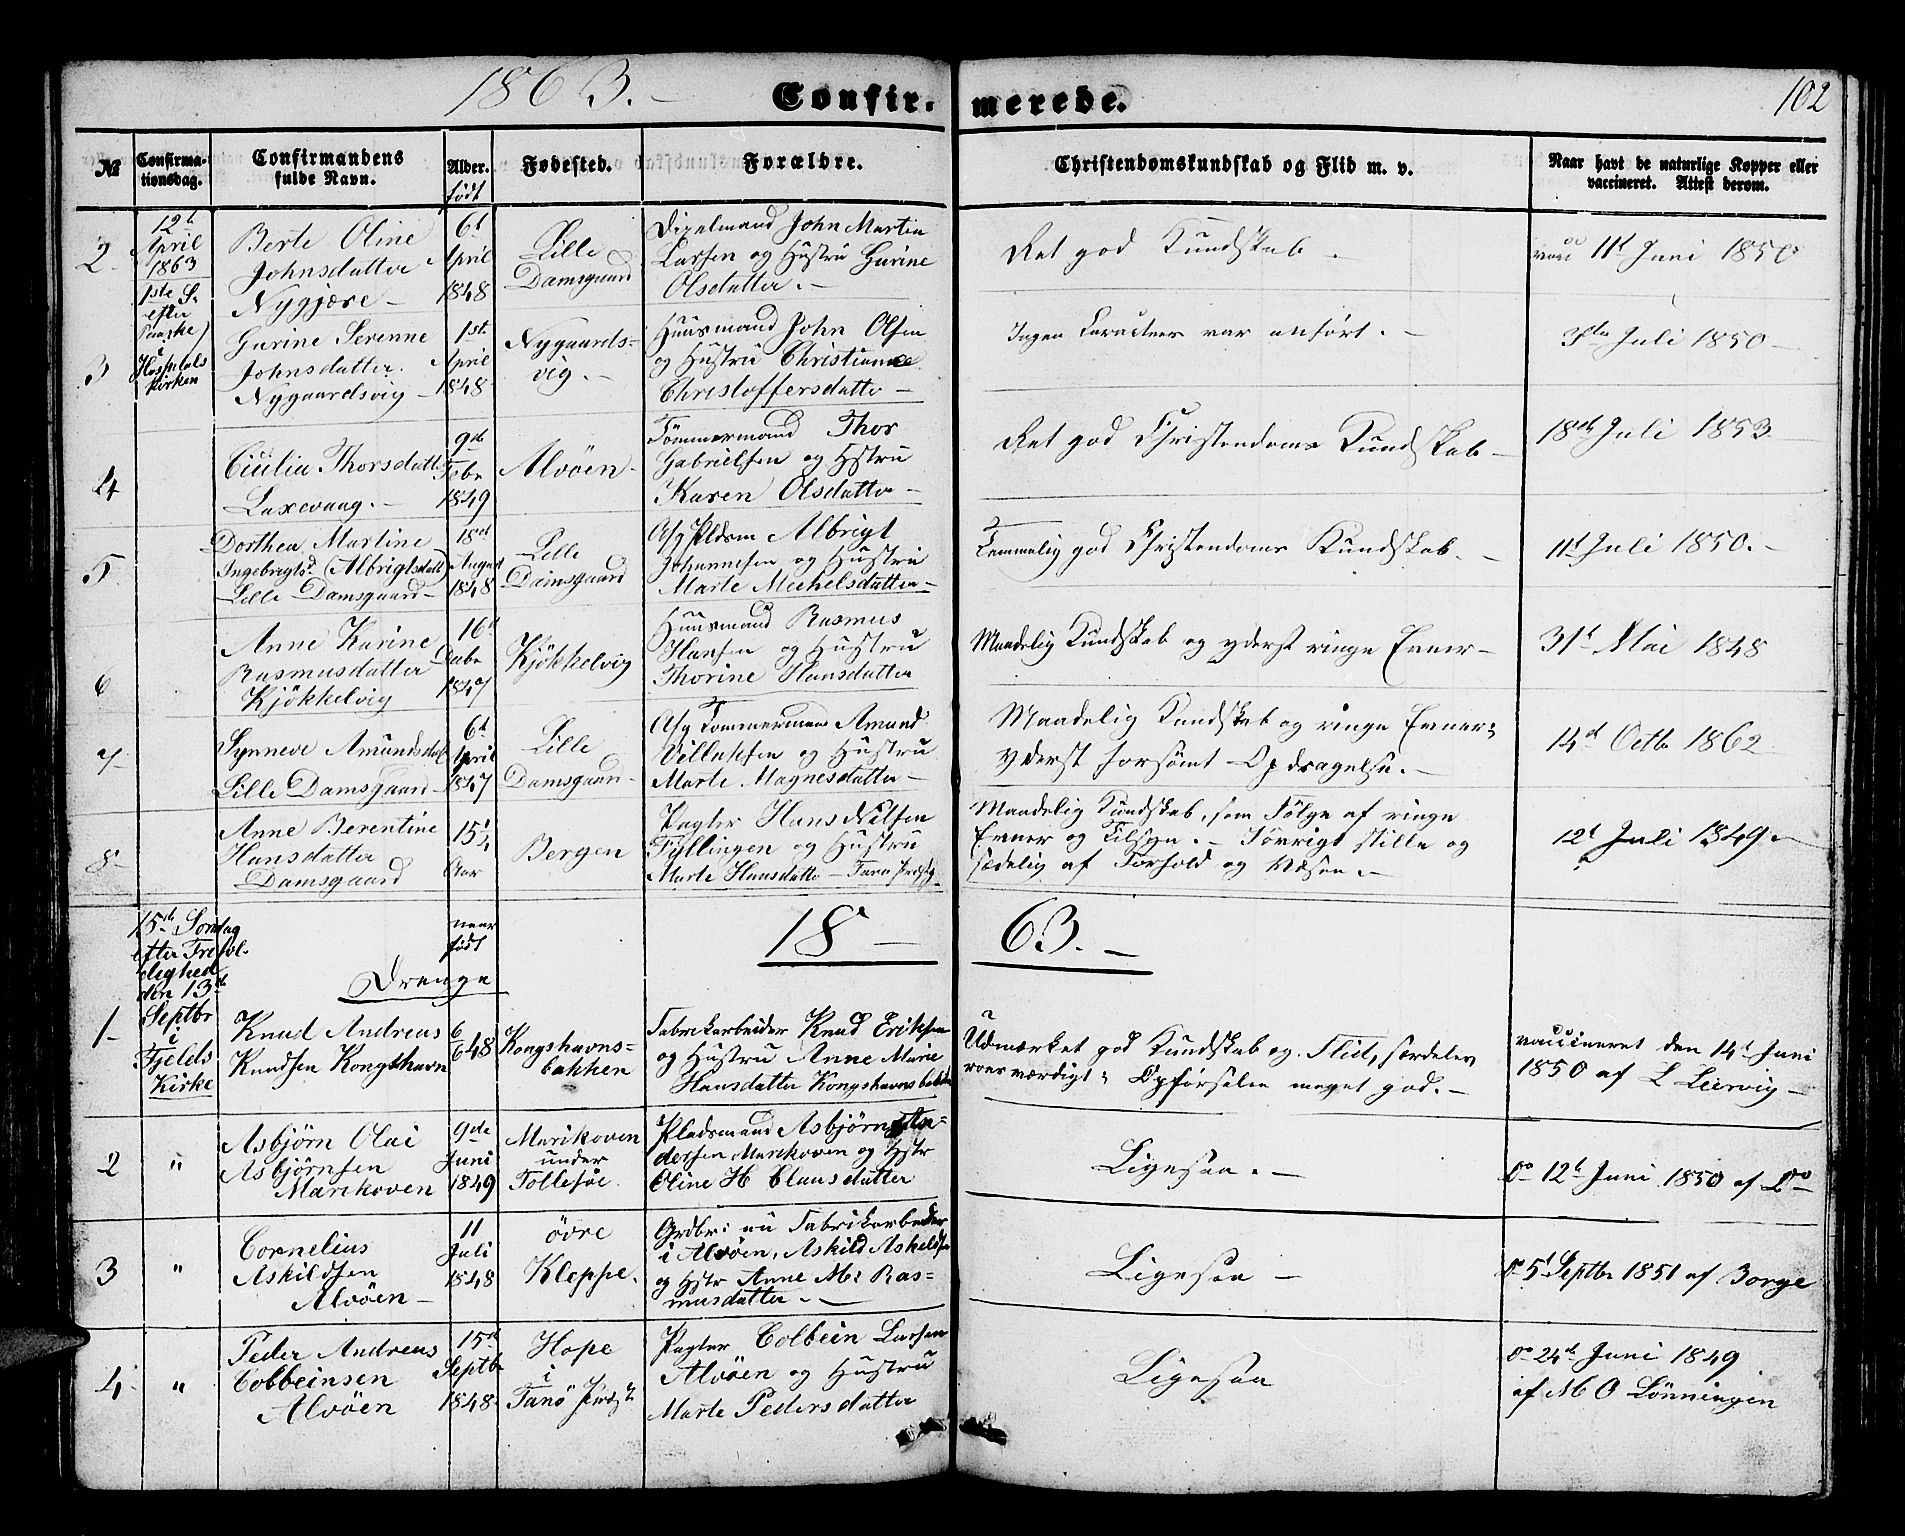 1863. -
Confir-
merede.
102
№
Confirma-
tionsdag.
Confirmandens
fulde Navn.
Alder.
født
Fødested.
Forældre.
Christendomskundskab og Flid m. v.
Naar havt de naturlige Kopper eller
vaccineret. Attest derom.
2
12t
April
1863
1ste S.
efter
Paaske
i
Hospitals
kirken
Berte Oline
Johnsdatter
Nygjære -
6t
April
1848
Lille
Damsgaard
John Martin
Larsen og Hustru Gurine
Olsdatter. -
Ret god Kundskab -
11t Juni 1850
3
Gurine Serenne
Johnsdatter.
Nygaardsvig -
1st
April
1848
Nygaards=
vig. -
Huusmand John Olsen
og Hustru Christiance
Christoffersdatter -
Ingen Caracteer var anført. -
Juli 1850 -
4
Cicilia Thorsdatt
Laxevaag. -
9de
Febr
1849
Alvøen -
Tømmermand Thor
Gabrielsen og Hstru
Karen Olsdatter -
Ret god Christendoms Kundskab -
18de Juli 1853
5
Dorthea Martine
Ingebrigtsd. (Albrigtsdatt)
Lille Damsgaard -
18de
August
1848
Lille
Damsgaard
Afg Pldsm Albrigt
Johannesen og Hustru
Marte Mechelsdatter -
Temmelig god Christendoms Kundskab. -
11t Juli 1850. -
6
Anne Karine
Rasmusdatter
Kjøkkelvig
16d
Decbr
1847
Kjøkkelvig
Huusmand Rasmus
Hansen og Hustru
Thorine Hansdatter
Maadelig Kundskab og yderst ringe Evner -
31t Mai 1848
7
Synneve Amundsdatt
Lille Damsgaard -
6t
April
1847
Lille
Damsgaar -
Afg Tømmermand Amund
Villumsen og Hustru
Marte Magnesdatter -
Maadelig Kundskab og ringe Evner;
yderst forsømt Opdragelse. -
14d Octb 1862
8
Anne Berentine
Hansdatter
Damsgaard
15 1/4
Aar
Bergen
Pagter Hans Nilsen
Fyllingen og Hustru
Marte Hansdatter - Fanø Prdsg.
Maadelig Kundskab, som Følge af ringe
Evner og Tilsyn. - Iøvrigt stille og
sædelig af Forhold og Væsen. -
12t Juli 1849 -
18 -
63. -
15de Søndag
efter Trefol-
dighed
den 13de
Septbr
i
Fjelds
Kirke
naar
født
Drenge
1-
Knud Andreas
Knudsen Kongshavn
6
6 48
Kongshavns=
bakken
Fabrikarbeider Knud Eriksen
og Hustru Anne Marie
Hansdatter Kongshavnsbakken
Udmærket god Kundskab og Flid, særdeles
roesværdigt; Opførselen meget god. -
vaccineret den 14t Juni
1850 af L Leirvig -
2
"
Asbjørn Olai
Asbjørnsen
Marikoven
9de
Juni
1849
Marikoven
under
Tollesøe.
Pladsmand Asbjørn An-
dersen Marikoven og Hstr
Oline H Clausdatter
Ligesaa. -
do 12t Juni 1850 af Do
3
"
Cornelius
Askildsen
Alvøen -
11
Juli
1848
øvre
Kleppe.
Grdbr: nu Fabrikarbeider
i Alvøen, Askild Askeldsen
og Hstr Anne M: Ras=
musdatter. -
Ligesaa -
do 5t Septbr 1851 af Borge
4
"
Peder Andreas
Colbeinsen
Alvøen
15de
Septbr
1848
Hope
i
Fanø Prdsg
Pagter Colbein Larsen
Alvøen og Hustru
Marte Pedersdatter
Ligesaa
do 24de Juni 1849
af M O Lønningen